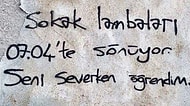 Sokak lambaları
07.04'te sönüyor
Seni severken öğrendim.